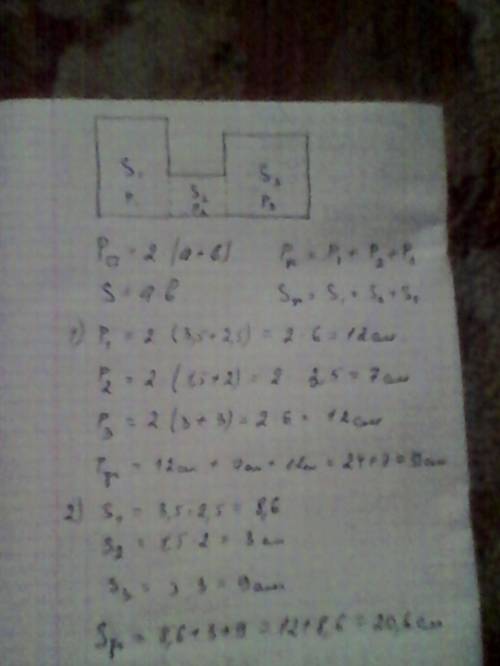 S₁ S₂ S₃
P₁ P₂ P₃
P▭ = 2 (a+b) Pφ = P₁ + P₂ + P₃
S = a b Sφ = S₁ + S₂ + S₃
1) P₁ = 2 (3,5 + 2,5) = 2 · 6 = 12 см
P₂ = 2 (1,5 + 2) = 2 3,5 = 7 см
P₃ = 2 (3 + 3) = 2 6 = 12 см
= 12 см + 7 см + 12 см = 24 + 7 = 31 см
2) S₁ = 3,5 · 2,5 = 8,6
S₂ = 1,5 · 2 = 3 см
S₃ = 3 3 = 9 см
= 8,6 + 3 + 9 = 12 + 8,6 = 20,6 см